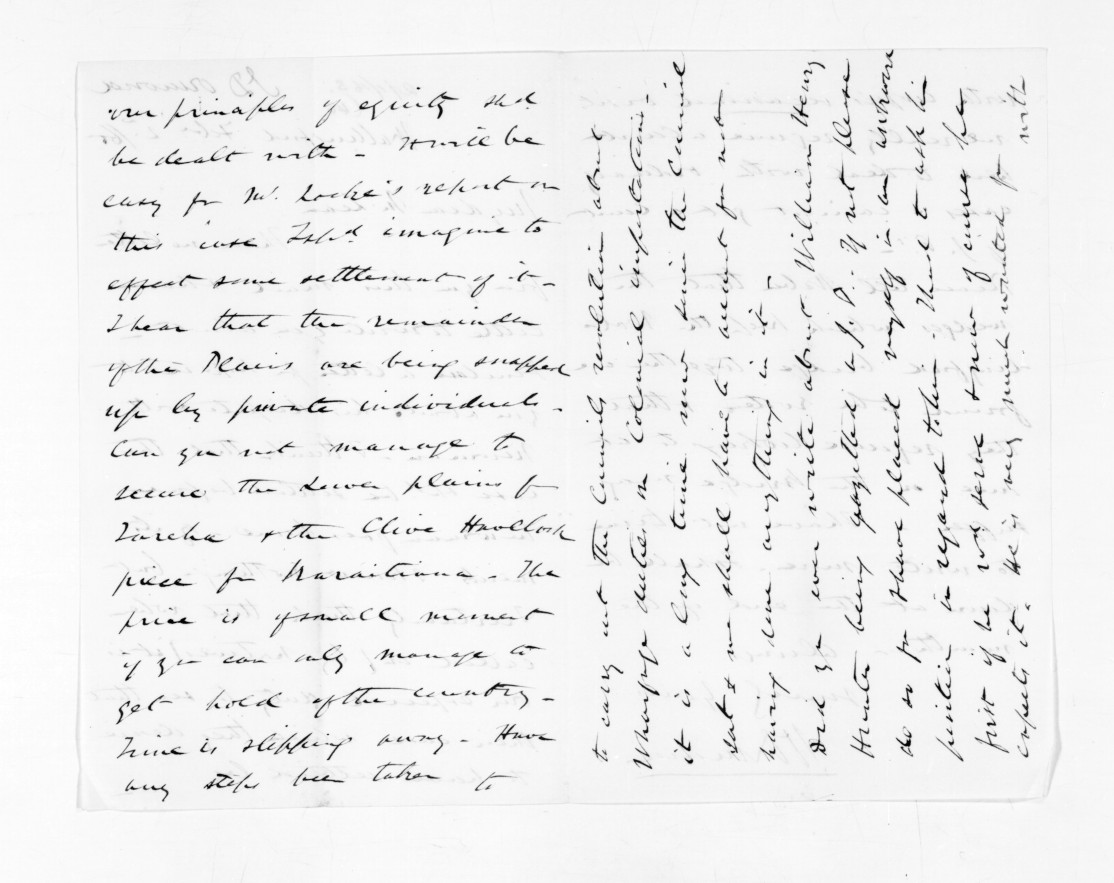 our principles of equity shd
be dealt with - It will be
easy for Mr. Locke's report on
this case I shd imagine to
effect some settlement of it -
I hear that the remainder
of the Plains are being snapped
up by private individuals -
Can you not manage to
secure the Lower plains for
Tareha & the Clive Havelock
piece for Karaitiana - The
price is of small moment
if you can only manage to
get hold of the country -
Time is slipping away - Have
any steps been taken to
to carry out the Councils resolution about
Wharfage duties on Colonial importations -
it is a long time now since the Council
sat & we shall have to meet for not
having done anything in it -
Did you ever write about William Henry
Hunter being gazetted a J. P. If not please
do so for I have placed myself in an awkward
position in regard to him. I had to ask him
first if he wd serve & now of course he
expects it. He is very much wanted for